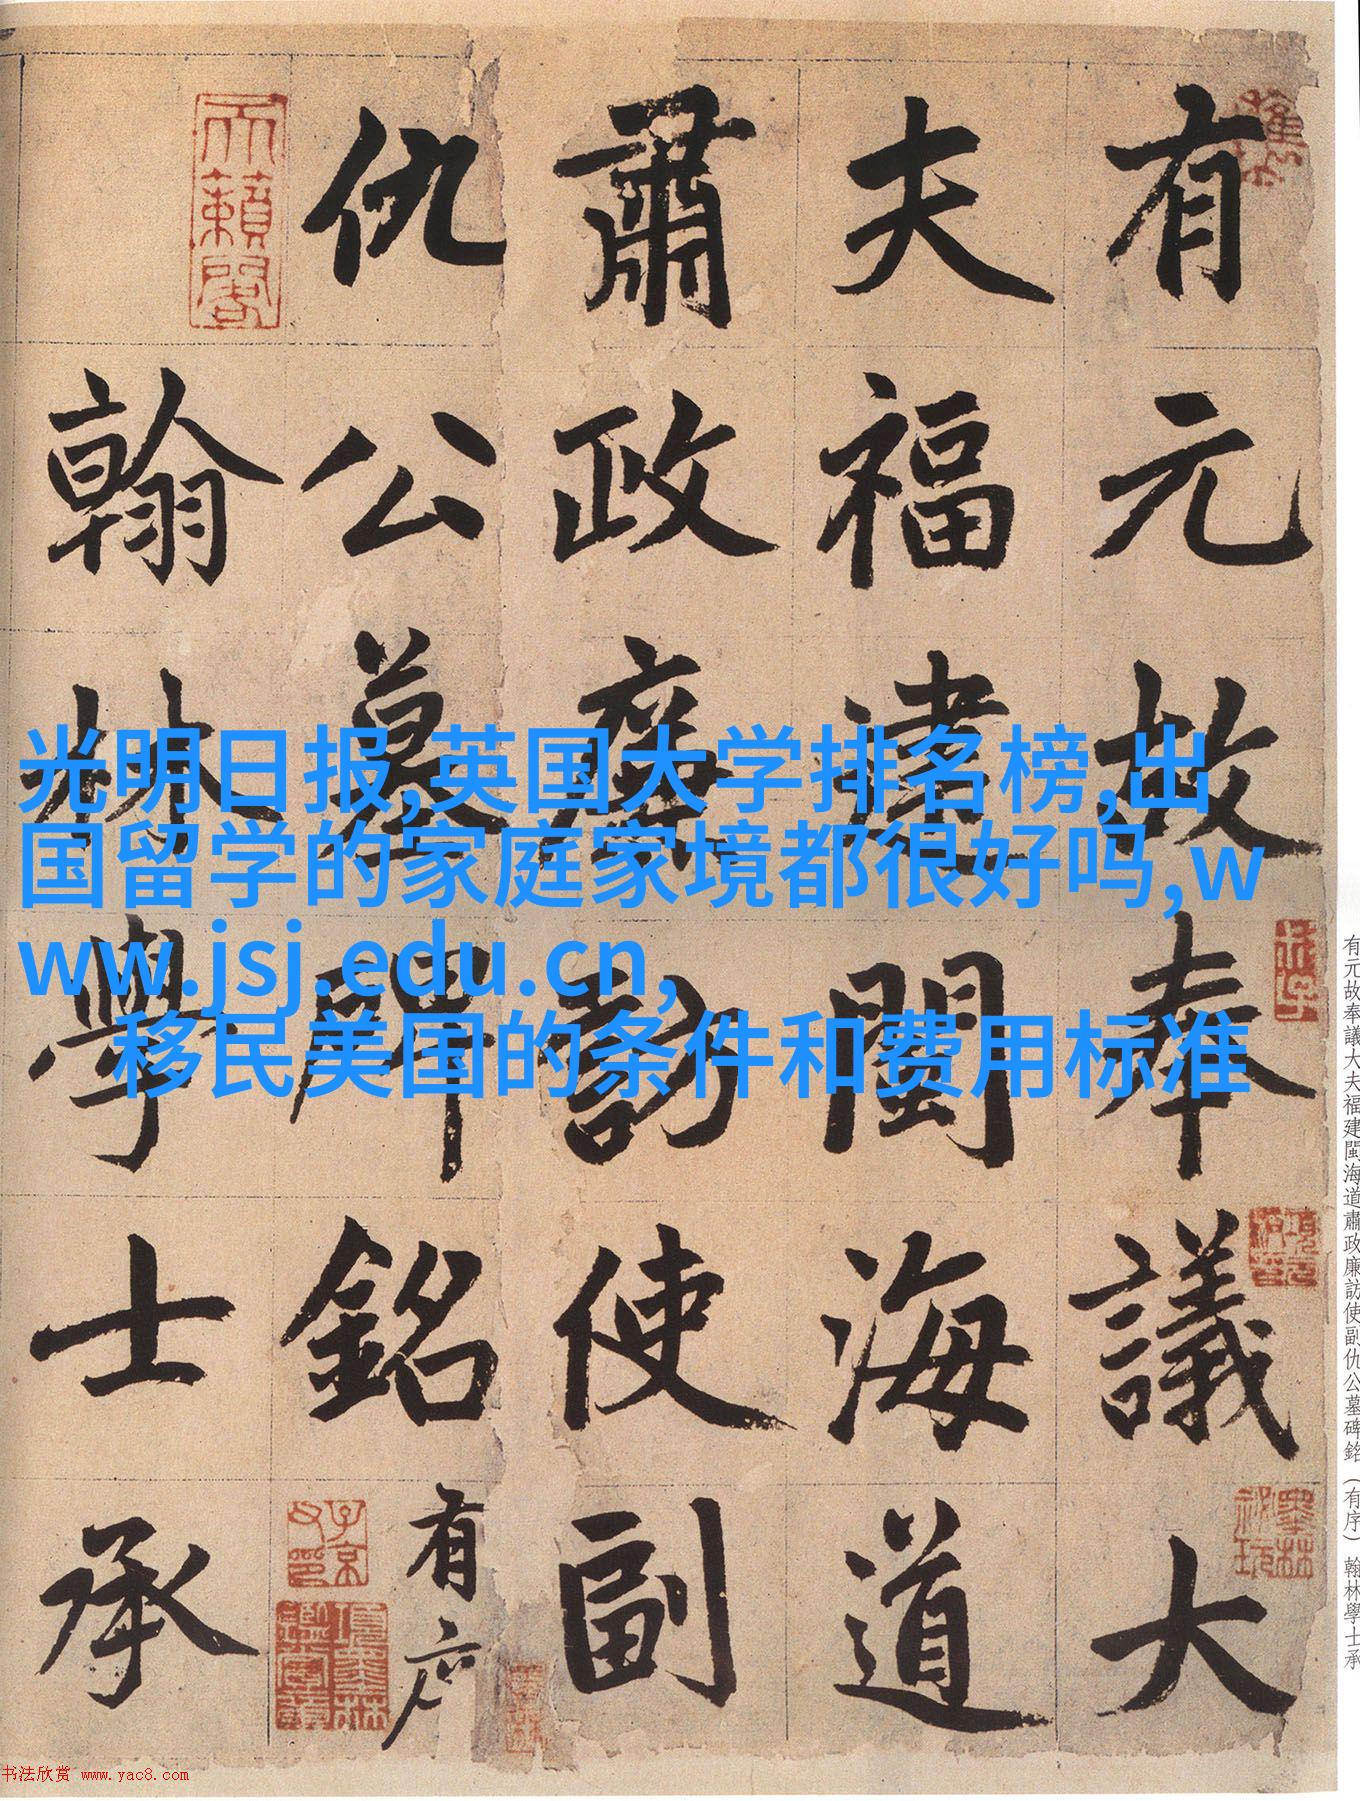 有元故奉議大
夫福建閩海道
肅政廉訪使副
仇公墓碑銘有序
翰林學士承
光明日报,英国大学排名榜,出
国留学的家庭家境都很好吗,w
ww.jsj.edu.cn,
移民美国的条件和费用标准
天籟閣
有元故奉議大夫福建閩海道肅政廉訪使副仇公墓碑銘（有序）翰林學士承
书法欣赏 www.yac8.com